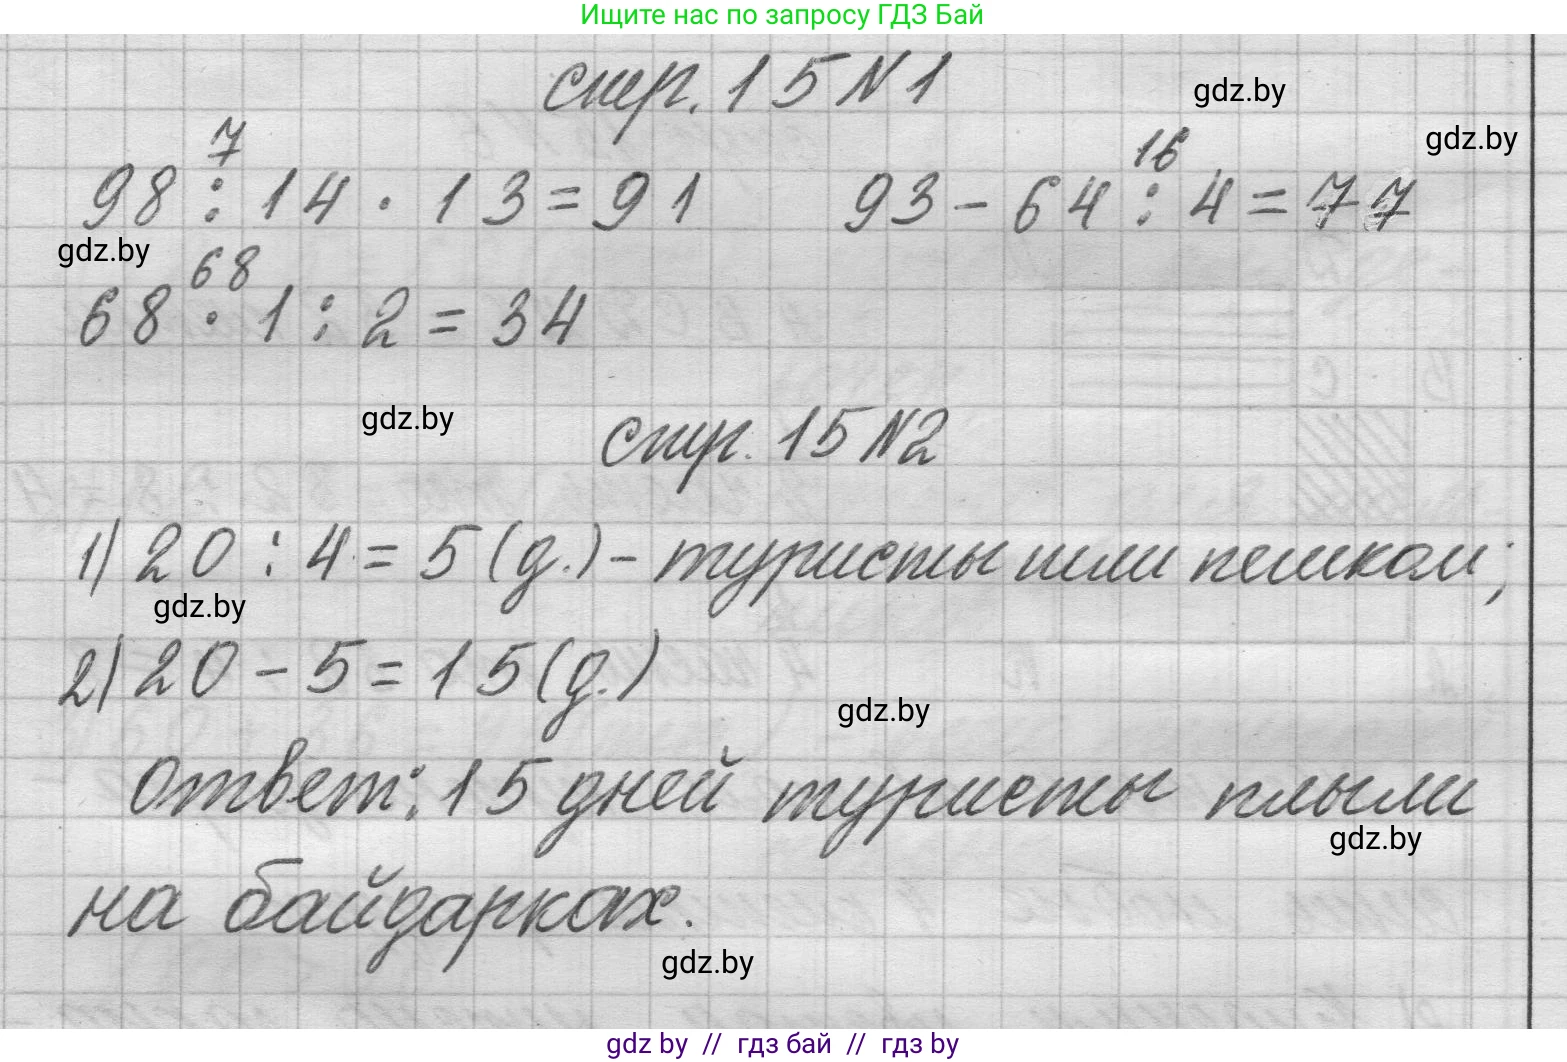 Ищите нас по запросу ГДЗ Бай
стр. 15 N 1
gdz.by
gdz.by
7
16
98 : 14 · 13 = 91 93 - 64 : 4 = 77
gdz.by
68
68 · 1 : 2 = 34
gdz.by
стр. 15 N2
1) 20 : 4 = 5 (д.) - туристы шли пешком;
gdz.by
2) 20 - 5 = 15 (д.)
gdz.by
Ответ: 15 дней туристы плыли
gdz.by
на байдарках.
gdz.by
gdz by // гдз бай // гдз by